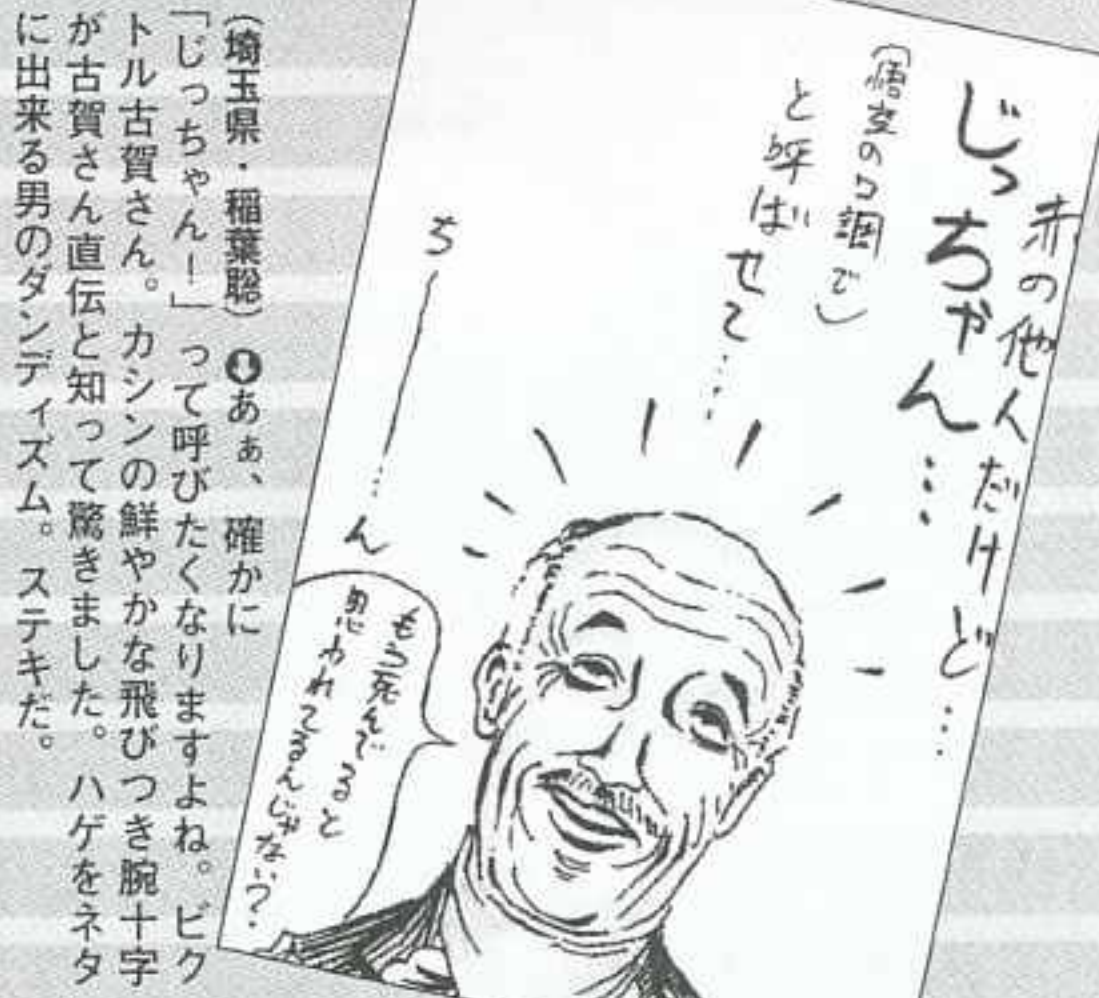 赤の他人だけど…
じっちゃん…
(悟空の口調で)
と呼ばせて…
ち――…ん
もう死んでると
思われてるんじゃない?
(埼玉県・稲葉聡)⬇あぁ、確かに
「じっちゃん!」って呼びたくなりますよね。ビク
トル古賀さん。カシンの鮮やかな飛びつき腕十字
が古賀さん直伝と知って驚きました。ハゲをネタ
に出来る男のダンディズム。ステキだ。